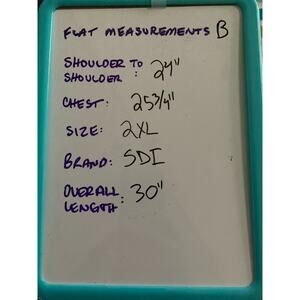 FLAT MEASUREMENTS B
SHOULDER TO
SHOULDER : 24"
CHEST: 25 3/4"
SIZE: 2XL
BRAND: SDI
OVERALL
LENGTH: 30"